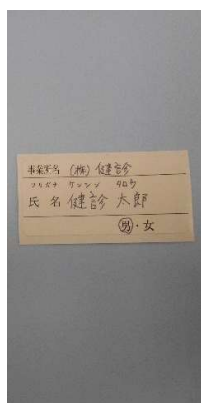 事業所名 (株) 健診
フリガナ ケンシン タロウ
氏名 健診 太郎
男・女